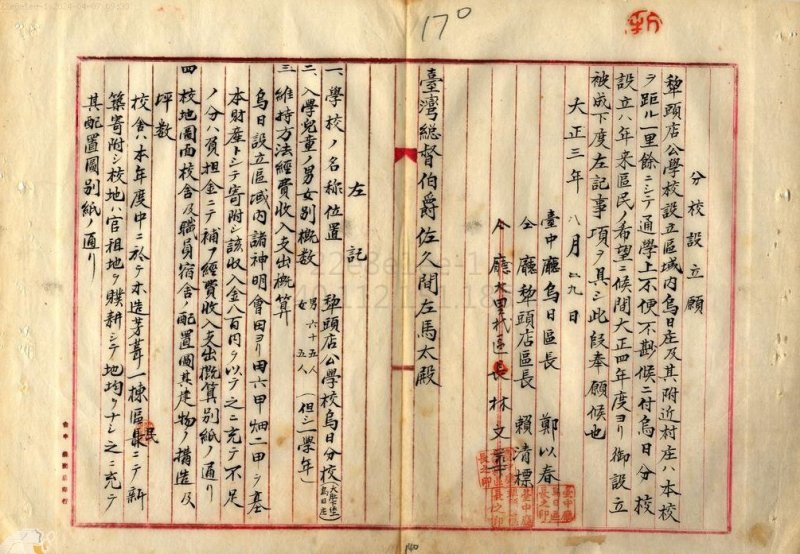 170
分校設立願
犂頭店公學校設立區域內烏日庄及其附近村庄ハ本校
ヲ距ル一里餘ニシテ通學上不便不尠候ニ付烏日分校
設立ハ年來區民ノ希望ニ候間大正四年度ヨリ御設立
被成下度左記事項ヲ具シ此段奉願候也
大正三年八月廿九日
臺中廳烏日區長 鄭以春
仝廳犂頭店區長 賴清標
仝廳大里杙區長 林文
臺灣總督伯爵佐久間左馬太殿
左記
一、學校ノ名称位置 犂頭店公學校烏日分校
二、入學兒童ノ男女別概數 男六十五人 女五人 (但シ一學年)
三 維持方法經費收入支出概算
烏日設立區域內諸神明會田ヨリ田六甲畑二甲ヲ基
本財產トシテ寄附シ該收入金八百円ヲ以テ之ニ充テ不足
ノ分ハ負担金ニテ補フ經費收入支出概算別紙ノ通リ
四 校地圖面校舍及職員宿舍ノ配置圖其建物ノ構造及
坪數
校舍ハ本年度中ニ於テ木造茅葺一棟區民ニテ新
築寄附シ校地ハ官租地ヲ贌耕シテ地均ヲナシ之ニ充テ
其配置圖別紙ノ通リ
140